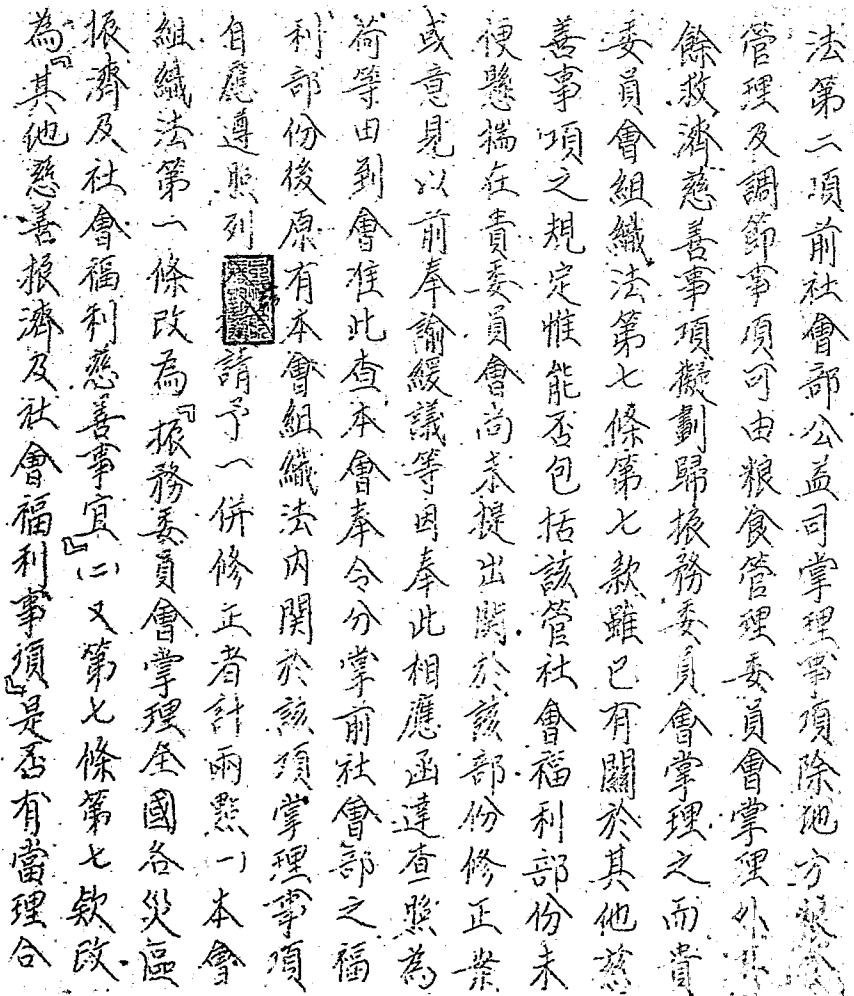 法第二項前社會部公益司掌理事項除地方糧食
管理及調節事項可由粮食管理委員會掌理外其
餘救濟慈善事項擬劃歸振務委員會掌理之而貴
委員會組織法第七條第七款雖已有關於其他慈
善事項之規定惟能否包括該管社會福利部份未
便懸揣在貴委員會尚未提出関於該部份修正案
或意見以前奉諭緩議等因奉此相應函達查照為
荷等由到會准此查本會奉令分掌前社會部之福
利部份後原有本會組織法内関於該項掌理事項
自應遵照列請予一併修正者計兩點(一)本會
組織法第一條改為『振務委員會掌理全國各災區
振濟及社會福利慈善事宜』(二)又第七條第七欵改
為『其他慈善振濟及社會福利事項』是否有當理合